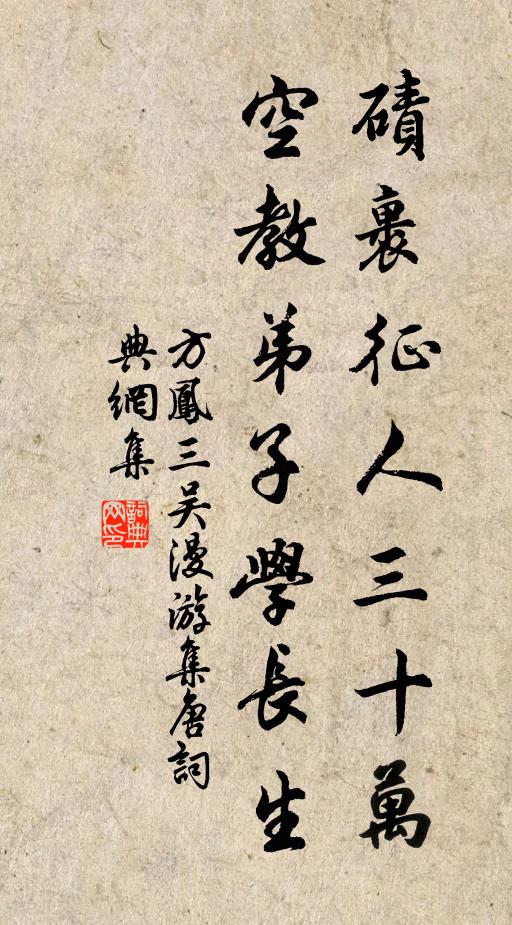 磧裏征人三十萬
空教弟子學長生
方鳳三吳漫游集唐詞
典網集
詞典
网印